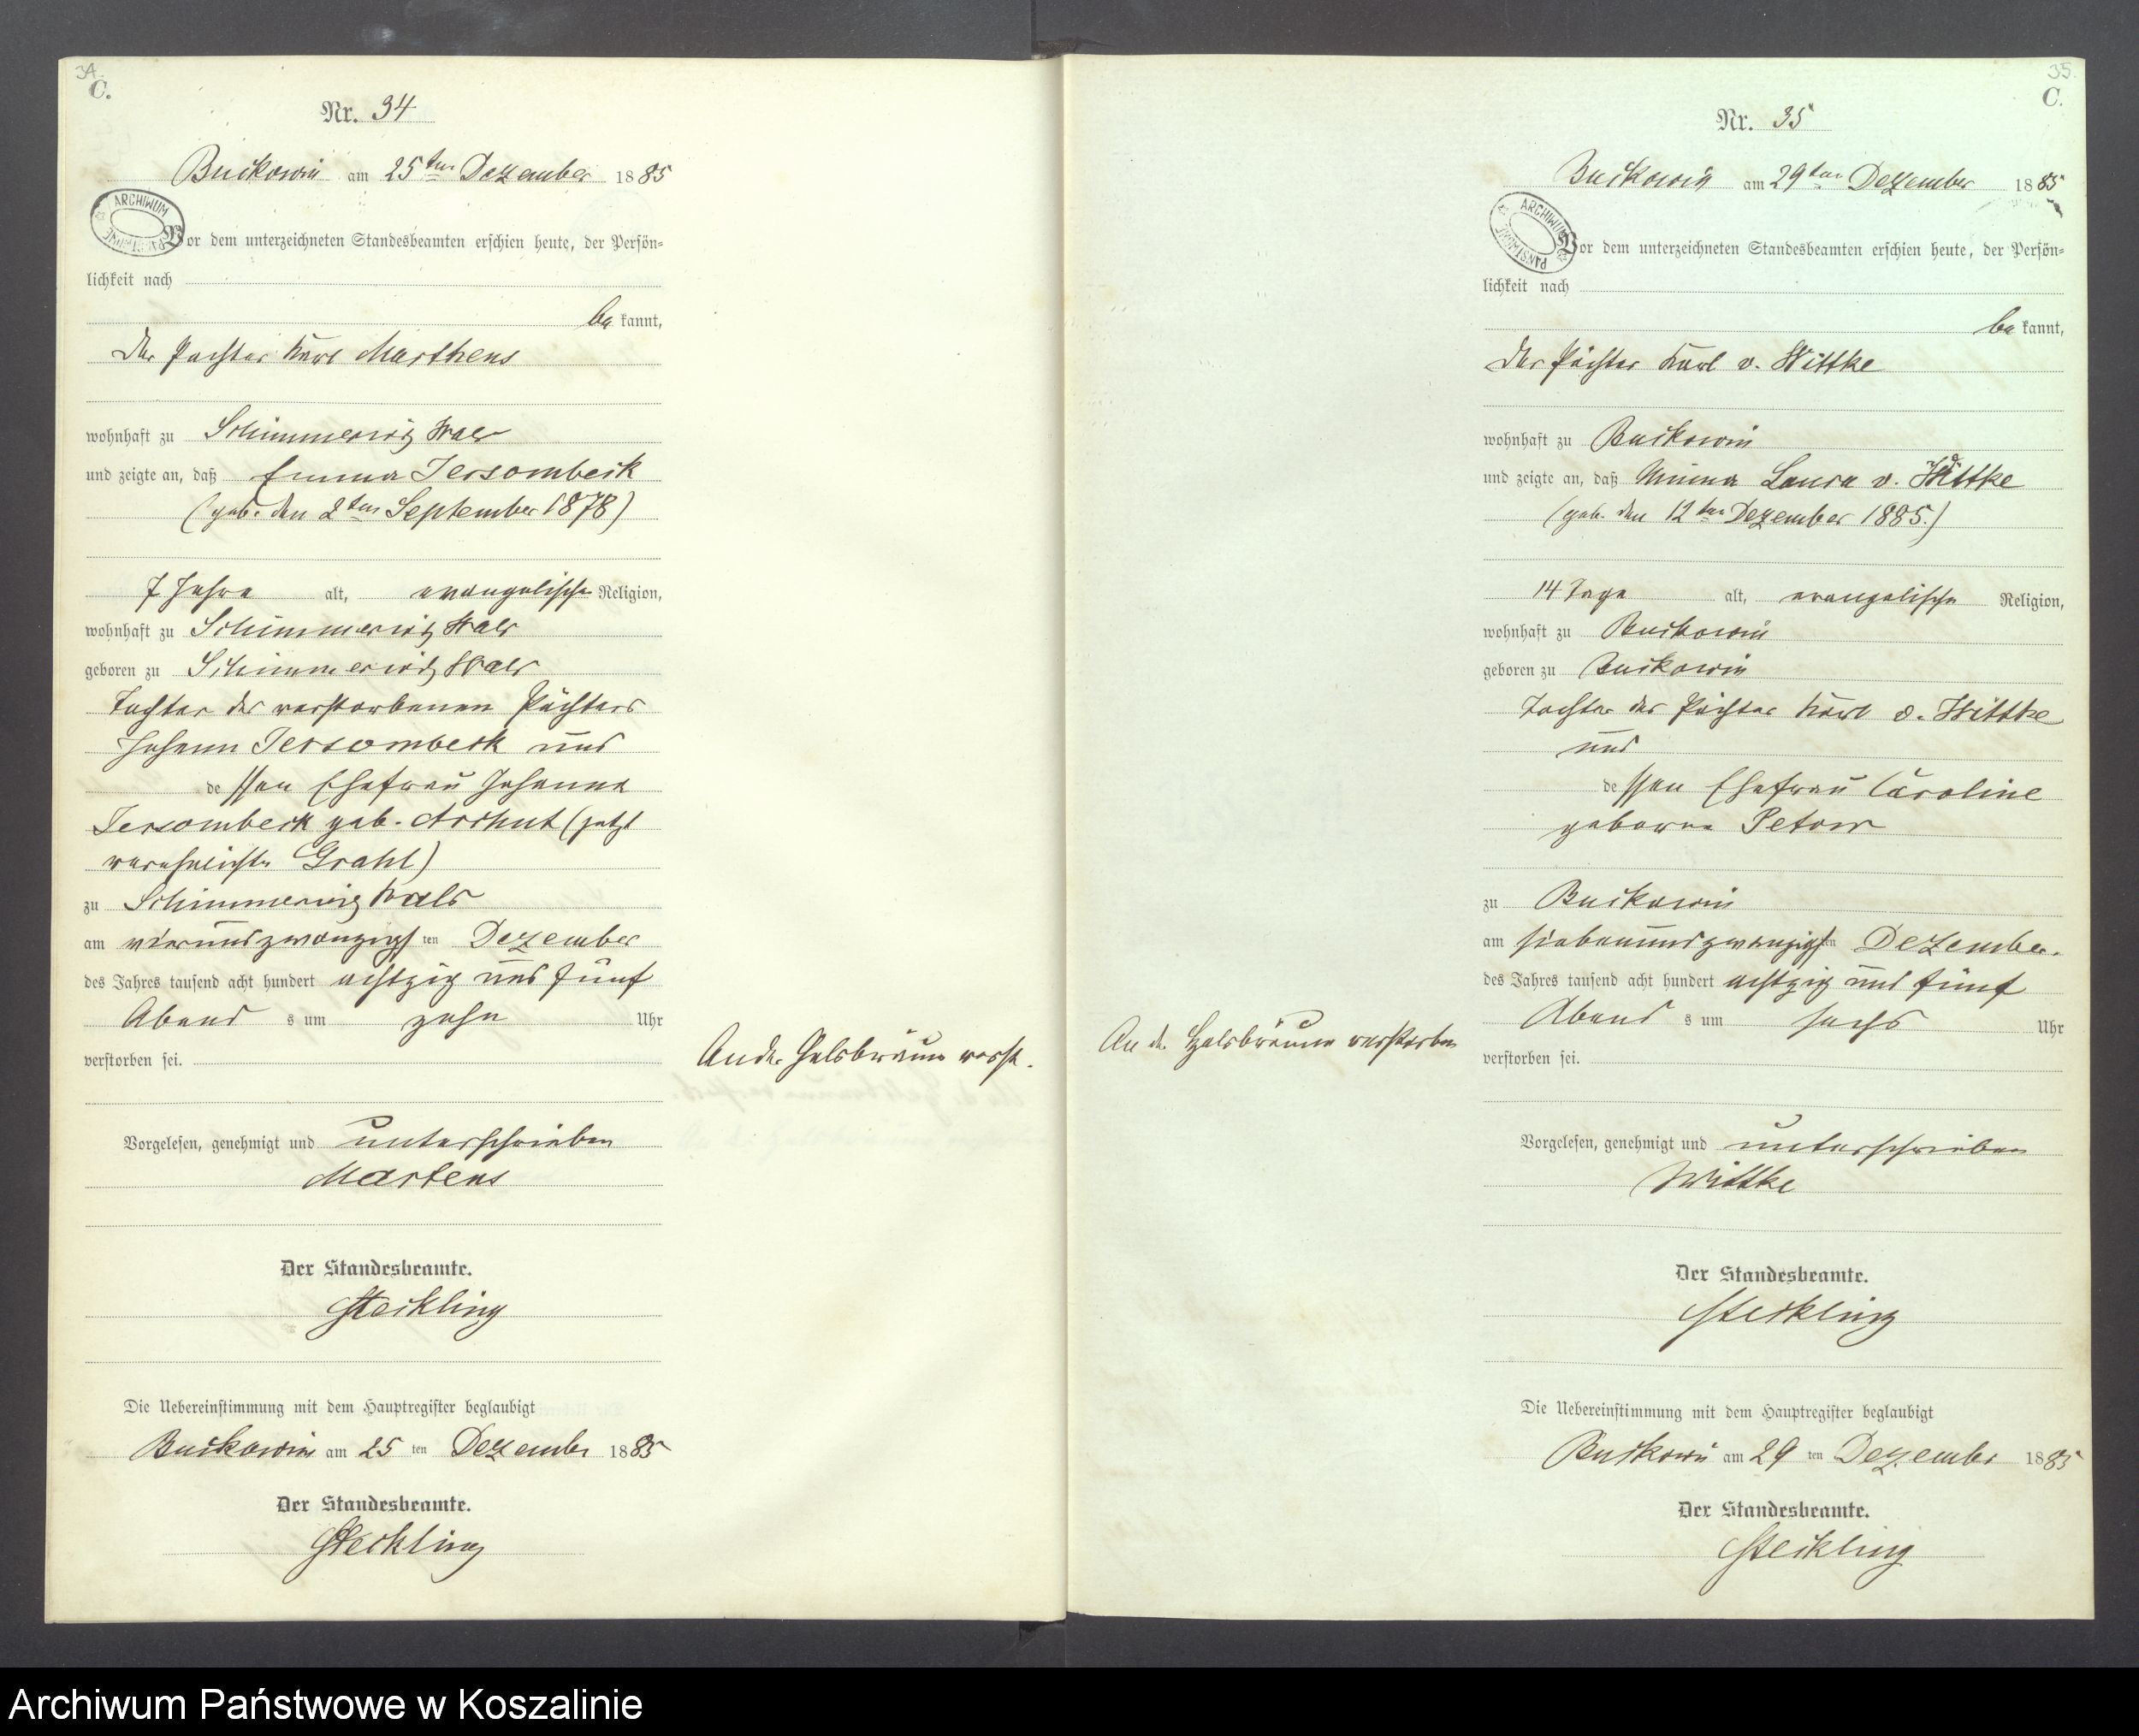 34.
C.
Nr. 34
Buckowin am 25ten Dezember 1885
ARCHIWUM
Vor dem unterzeichneten Standesbeamten erschien heute, der Persön=
lichkeit nach
be kannt,
der Pächter Karl Marthens
wohnhaft zu Schimmerwitz Wald
und zeigte an, daß Emma Jersombeck
(geb. den 2ten September 1878)
7 Jahre alt, evangelischer Religion,
wohnhaft zu Schimmerwitz Wald
geboren zu Schimmerwitz Wald
Tochter des verstorbenen Pächters
Johann Jersombeck und
de ssen Ehefrau Johanna
Jersombeck geb. Archut (jetzt
verehelichte Grahl)
zu Schimmerwitz Wald
am vierundzwanzigst ten Dezember
des Jahres tausend acht hundert achtzig und fünf
Abend s um zehn Uhr
verstorben sei.
An der Halsbräune verst.
Vorgelesen, genehmigt und unterschrieben
Martens
Der Standesbeamte.
Steckling
Die Uebereinstimmung mit dem Hauptregister beglaubigt
Buckowin am 25 ten Dezember 1885
Der Standesbeamte.
Steckling
35.
C.
Nr. 35
Buckowin am 29ten Dezember 1885
ARCHIWUM PAŃSTWOWE
Vor dem unterzeichneten Standesbeamten erschien heute, der Persön=
lichkeit nach
be kannt,
der Pächter Karl v. Wittke
wohnhaft zu Buckowin
und zeigte an, daß Minna Laura v. Wittke
(geb. den 12ten Dezember 1885.)
14 Tage alt, evangelischer Religion,
wohnhaft zu Buckowin
geboren zu Buckowin
Tochter des Pächter Karl v. Wittke
und
de ssen Ehefrau Caroline
geborene Petow
zu Buckowin
am siebenundzwanzigst ten Dezember
des Jahres tausend acht hundert achtzig und fünf
Abend s um sechs Uhr
verstorben sei.
An der Halsbräune verstorben
Vorgelesen, genehmigt und unterschrieben
Wittke
Der Standesbeamte.
Steckling
Die Uebereinstimmung mit dem Hauptregister beglaubigt
Buckowin am 29 ten Dezember 1885
Der Standesbeamte.
Steckling
Archiwum Państwowe w Koszalinie